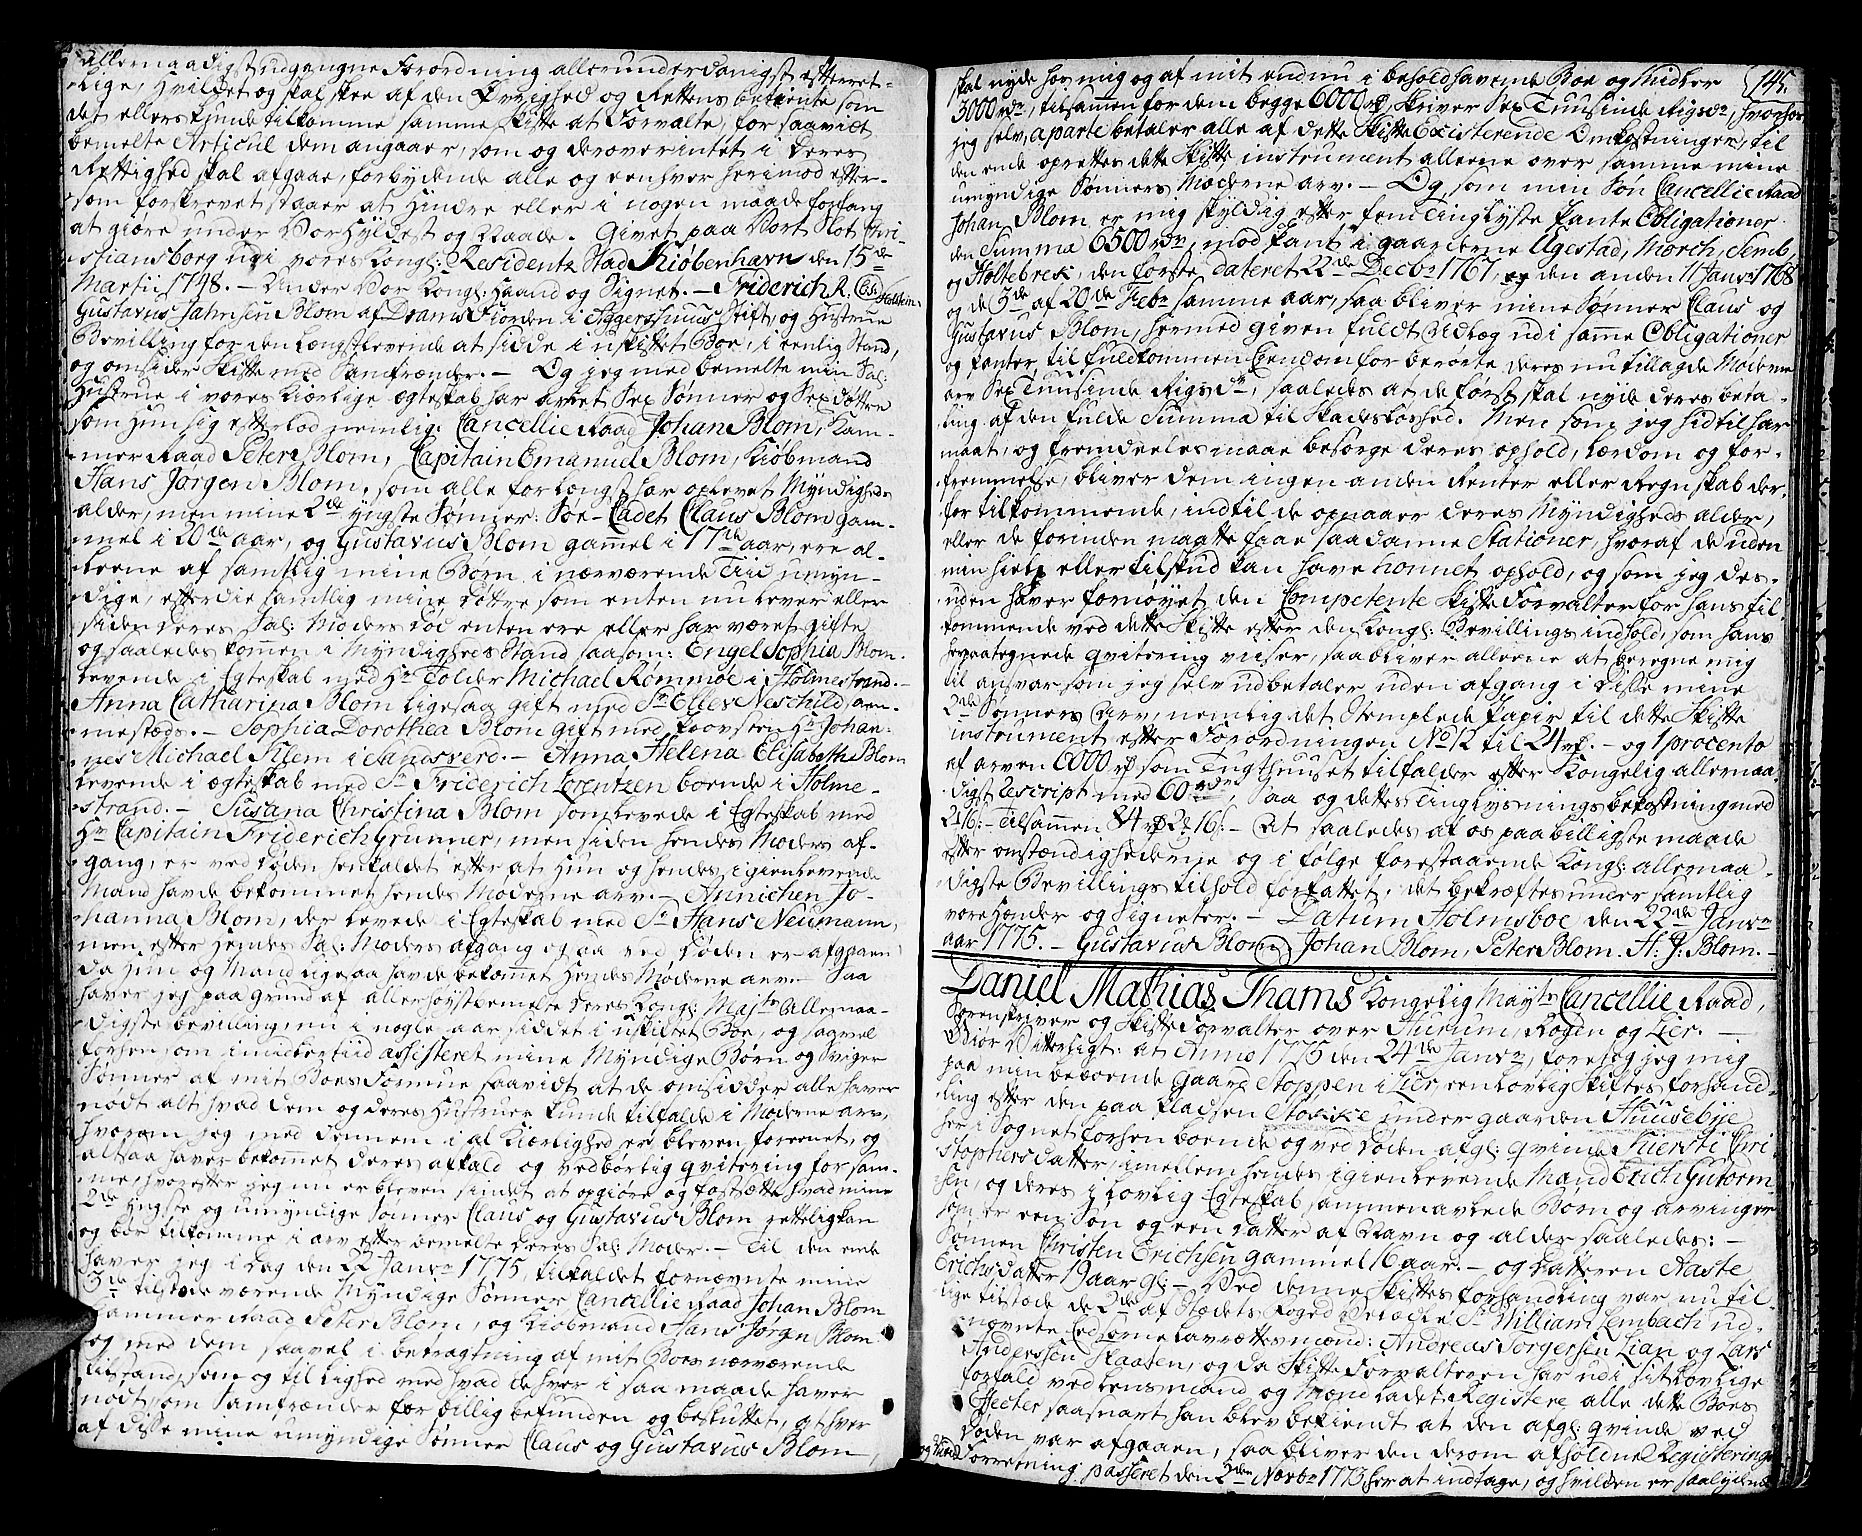 Allernaadigst udgangne Forordning allerunderdanigst efterret-
lige, hvilket og skal skee af den Øvrighed og Rettens betiente som
det ellers kunde tilkomme samme Skifte at Forvalte, for saavidt
bemelte Articul dem angaaer, som og derover intet i deres
Rettighed skal afgaae, forbydende alle og eenhver herimod efter-
som forskrevet staaer at hindre eller i nogen maade forfang
at giøre under Vor Hyldest og Naade. Givet paa Vort Slot Chri-
stiansborg udi vores Kongl: Residentz Stad Kiøbenhavn den 15de
Martii 1748. - Under Vor Kongl: Haand og Signet. - Friderich R. Holstein.
Gustavus Blom af Drams Fiorden i Aggershuus Stift, og Hustrue
Bevilling for den Længstlevende at sidde i uskiftet Boe, i eenlig Stand,
og omsider Skifte med Samfrænder. - Og jeg med bemelte min Sal:
Hustrue i vores kiærlige ægteskab har avlet Sex Sønner og Sex døttre
som hun sig efterlod nemlig: Cancellie Raad Johan Blom, Kam-
mer Raad Peter Blom, Capitain Emanuel Blom, Kiøbmand
Hans Jørgen Blom, som alle for longst har oplevet Myndigheds
alder, men mine 2de yngste Sønner: Søe-Cadet Claus Blom gam-
mel i 20de aar, og Gustavus Blom gammel i 17de aar, ere al-
leene af samtlig mine Børn i nærværende Tiid umyn-
dige, efterdie samtlig mine døttre som enten nu lever eller
siden deres Sal: Moders død enten ere eller har været gifte
og saaledes kommen i Myndigheds Stand saasom: Engel Sophia Blom
levende i Egteskab med Hr Tolder Michael Rømmøe i Holmestrand. -
Anna Catharina Blom ligesaa gift med Sr Elles Neschild sam-
mesteds. - Sophia Dorothea Blom gift med Provsten Hr Johan-
nes Michael Klem i Sandsverd. - Anna Helena Elisabetha Blom
levende i ægteskab med Sr Friderich Lorentzen boende i Holme-
strand. - Susana Christina Blom som levede i Egteskab med
Hr Capitain Friderich Grunner, men siden hendes Moders af-
gang, er ved døden henkaldet efter at hun og hendes igienlevende
Mand havde bekommet hendes Moderne arv. - Annichen Jo-
hanna Blom, der levede i Egteskab med Sr Hans Neumann,
men efter hendes Sal: Moders afgang ogsaa ved døden er afgaaen
da hun og Mand ligesaa havde bekommet hendes Moderne arv. Saa
haver jeg paa grund af allerhøystbemelte deres Kongl: Mayts Allernaa-
digste bevilling, nu i nogle aar siddet i uskiftet Boe, og saavel
forhen, som imidlertiid assisteret mine Myndige Børn og Sviger
Sønner af mit Boes Formue saavidt at de omsidder alle haver
nødt alt hvad dem og deres Hustruer kunde tilfalde i Moderne arv,
hvorom jeg med dennem i al Kiærlighed er bleven foreenet, og
altsaa haver bekommet deres afkald og vedbørlig qvitering for sam-
me, hvorefter jeg nu er bleven sindet at opgiøre og fastsætte hvad mine
2de yngste og umyndige Sønner Claus og Gustavus Blom retteligst kan
og bør tilkomme i arv efter bemelte deres Sal: Moder. - Til den ende
haver jeg i dag den 22 Janvr 1775, tilkaldet fornævnte mine
3de tilstedeværende Myndige Sønner Cancellie Raad Johan Blom
Kammer Raad Peter Blom, og Kiøbmand Hans Jørgn Blom
og med dem saavel i betragtning af mit Boes nærværende
tilstand, som og til lighed med hvad de hver i saa maade haver
nødt, som Samfrænder for billig befunden og besluttet, at hver
af disse mine umyndige Sønner Claus og Gustavus Blom,
145.
skal nyde hos mig og af mit endnu i behold havende Boe og Midler
3000 rdr, tilsammen for dem begge 6000 rd, Skriver Sex Tuusinde Rigsdr, hvorfor
jeg selv, aparte betaler alle af dette Skifte Existerende Omkostninger, til
den ende oprettes dette Skifte instrument alleene over samme mine
umyndige Sønners Moderne arv. - Og som min Søn Cancellie Raad
Johan Blom er mig skyldig efter fem Tinglyste Pante Obligationer
den Summa 6500 rdr, mod Pant i gaarderne Ugestad, Morch, Semb,
og Holtebrek, den første dateret 22de Decbr 1767, og den anden 11 Janvr 1768
og de 3de af 20de Febr samme aar, saa bliver mine Sønner Claus og
Gustavus Blom, hermed given fuldt Udlæg udi samme Obligationer
og panter til fuldkommen Eyendom for berørte deres nu tillagde Moderne
arv Sex Tuusinde Rigsdr, saaledes at de først skal nyde deres beta-
ling af den fulde Summa til Skadesløshed. Men som jeg hidtil har
maat, og fremdeeles maae besørge deres ophold, lærdom og for-
fremmelse, bliver dem ingen anden Renter eller Regnskab der-
for tilkommende, indtil de opnaaer deres Myndigheds alder,
eller de forinden maatte faae saadanne Stationer, hvoraf de uden
min hielp eller tilskud kan have honnet ophold, og som jeg des-
uden haver fornøyet den Competente Skifte Forvalter for hans til-
kommende ved dette Skifte efter den Kongl: Bevillings indhold, som hans
herpaategnede qvitering viiser, saa bliver alleene at beregne mig
til ansvar som jeg selv udbetaler uden afgang i disse mine
2de Sønners Arv, nemlig det Stemplede Papir til dette Skifte
instrument efter Forordningen No 12 til 24 rd. - og 1 procento
af arven 6000 rd som Tugthuuset tilfalder efter Kongelig allernaa-
digst Rescript med 60 rdr, Saa og dettes Tinglysnings bekostning med
2 ₰ 16 s: - Tilsammen 84 rd 2 ₰ 16: - At saaledes af os paa billigste maade
efter omstændighederne og i følge forestaaende Kongl: allernaa-
digste Bevillings tilhold forfattet, det bekræftes under samtlig
vore Hænder og Signeter. - Datum Holmsboe den 22de Janvr
aar 1775. - Gustavus Blom, Johan Blom, Peter Blom. H. J: Blom. -
Daniel Mathias Thams Kongelig Mayts Cancellie Raad,
Sorenskriver og Skifte Forvalter over Hurum, Røgen og Lier. -
Giør Vitterligt: at Anno 1775 den 24de Janvr, foretog jeg mig
paa min beboende Gaard Stoppen i Lier, een lovlig Skiftes forhand-
ling efter den paa Pladsen Stokke under gaarden Huusebye
her i Sognet forhen boende og ved døden afgl: qvinde Kiersti Chri-
stophersdatter, imellem hendes igienlevende Mand Erich Guttorm-
sen, og deres i lovlig Egteskab sammenavlede Børn og arvinger
som er een Søn og een datter af Navn og alder saaledes: -
Sønnen Christen Erichsen gammel 16 aar. - og datteren Aaste
Erichsdatter 19 aar gl: - Ved denne Skiftes forhandling var nu til-
lige tilstede de 2de af Stædets Foged Velædle Sr William Lembach ud-
nævnte Eedsorne Lavrettesmænd: Andreas Torgersen Lian og Lars
Anderssen Skaasen, og da Skifte Forvalteren har udi sit lovlige
forfald ved lensmand og mænd ladet Registere alle dette Boes
Effecter saasnart han blev bekiendt at den afgl: qvinde ved
døden var afgaaen, saa bliver den derom afholdne Registerings
Forretning, passeret den 2den Novbr 1773, her at indtage, og hvilken er saalydende